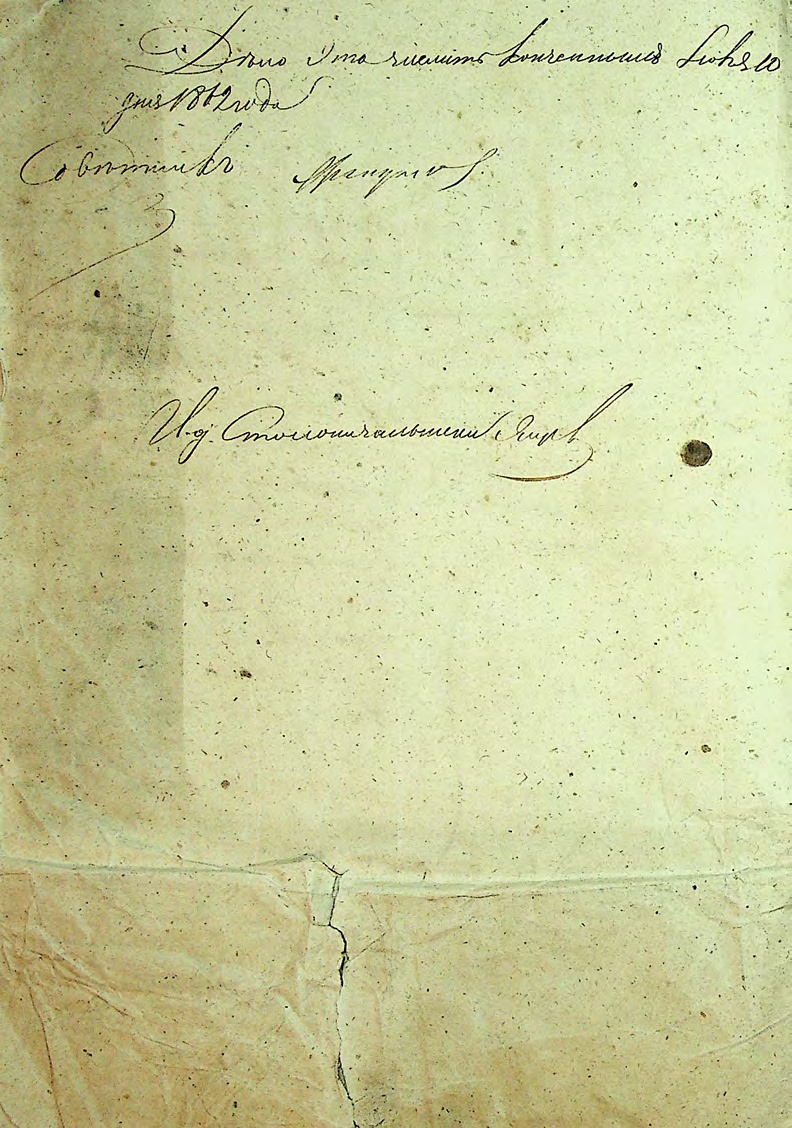 Дѣло это числитъ конченнымъ Іюня 10
дня 1862 года
Совѣтникъ
И. д. Столоначальника